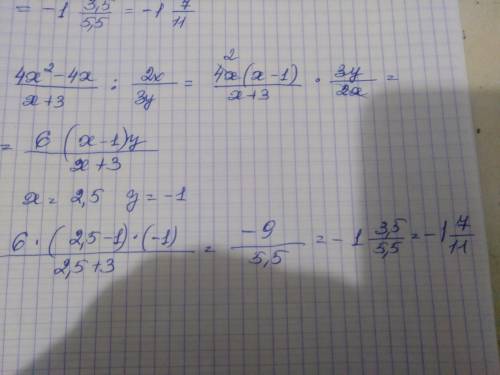 = -1 3,5/5,5 = -1 7/11
4x²-4x/x+3 : 2x/3y = 2 4x(x-1)/x+3 · 3y/2x =
= 6(x-1)y/x+3
x = 2,5 y = -1
6·(2,5-1)·(-1)/2,5+3 = -9/5,5 = -1 3,5/5,5 = -1 7/11